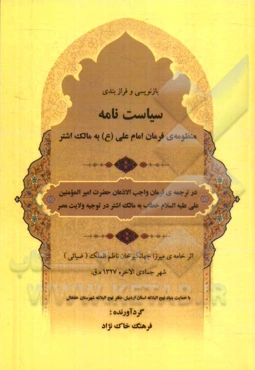 بازنویسی و فراز بندی
سیاست نامه
منظومه‌ی فرمان امام علی (ع) به مالک اشتر
در ترجمه ی فرمان واجب الاذعان حضرت امیر المؤمنین
علی علیه السلام خطاب به مالک اشتر در توجیه ولایت مصر
اثر خامه ی میرزا جهانگیر خان ناظم الملک ( ضیائی )
شهر جمادی الاخره ۱۳۲۷ ه.ق.
با حمایت بنیاد نهج البلاغه استان اردبیل، دفتر نهج البلاغه شهرستان خلخال
گردآورنده :
فرهنگ خاک نژاد